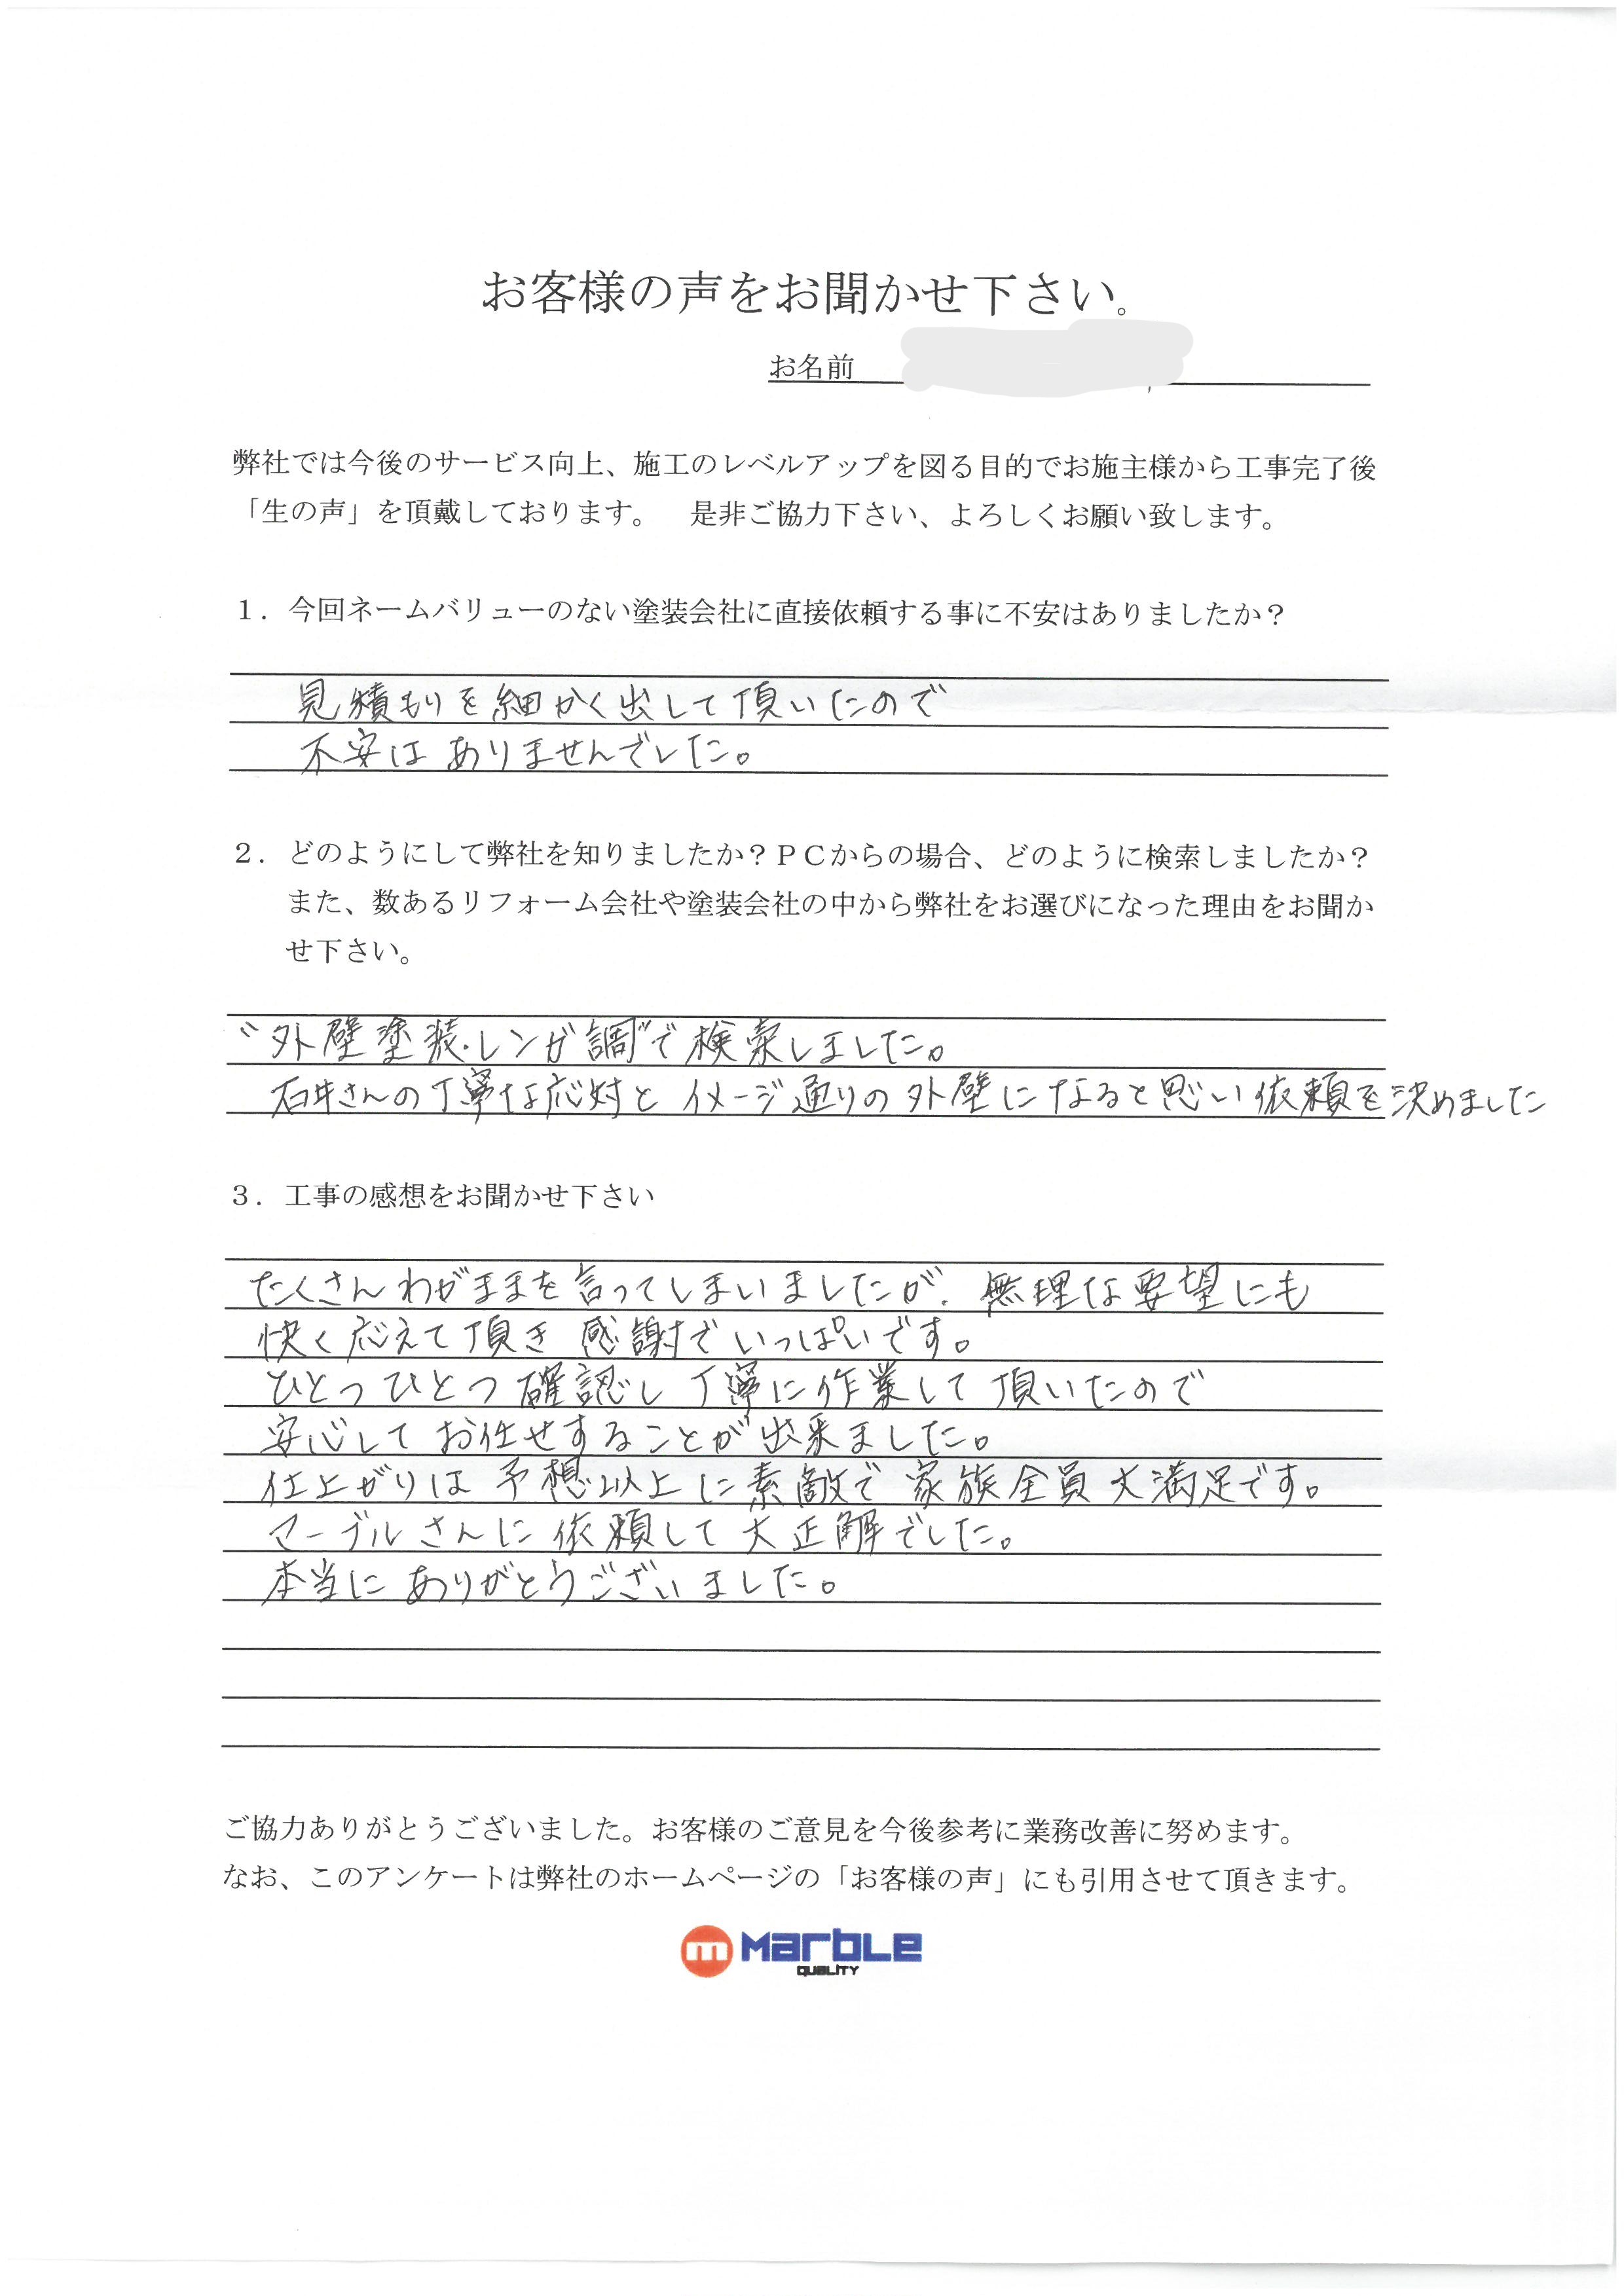 お客様の声をお聞かせ下さい。
お名前
弊社では今後のサービス向上、施工のレベルアップを図る目的でお施主様から工事完了後
「生の声」を頂戴しております。　是非ご協力下さい、よろしくお願い致します。
１．今回ネームバリューのない塗装会社に直接依頼する事に不安はありましたか？
見積もりを細かく出して頂いたので
不安は ありませんでした。
２．どのようにして弊社を知りましたか？ＰＣからの場合、どのように検索しましたか？
また、数あるリフォーム会社や塗装会社の中から弊社をお選びになった理由をお聞か
せ下さい。
〝外壁塗装・レンガ調〟で検索しました。
石井さんの丁寧な応対と イメージ通りの外壁になると思い依頼を決めました
３．工事の感想をお聞かせ下さい
たくさんわがままを言ってしまいましたが、無理な要望にも
快く応えて頂き 感謝でいっぱいです。
ひとつひとつ確認し丁寧に作業して頂いたので
安心して お任せすることが出来ました。
仕上がりは 予想以上に素敵で 家族全員大満足です。
マーブルさんに依頼して大正解でした。
本当に ありがとうございました。
ご協力ありがとうございました。お客様のご意見を今後参考に業務改善に努めます。
なお、このアンケートは弊社のホームページの「お客様の声」にも引用させて頂きます。
m Marble
QUALITY